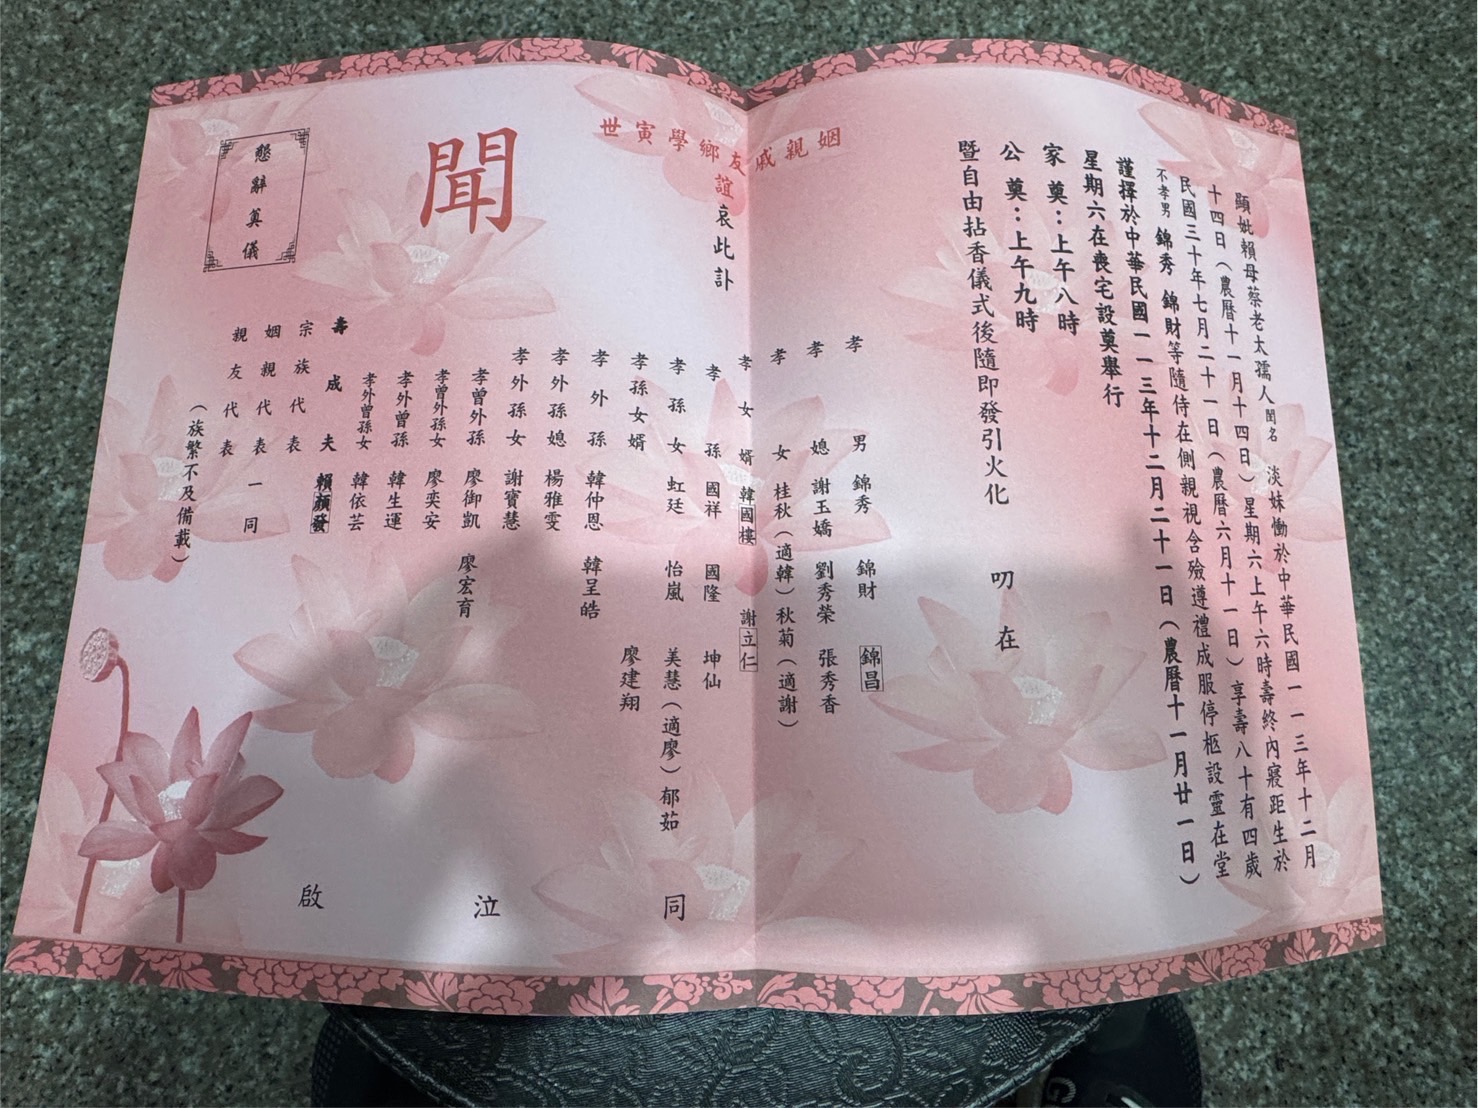 顯妣賴母蔡老太孺人閨名 淡妹慟於中華民國一一三年十二月
十四日（農曆十一月十四日）星期六上午六時壽終內寢距生於
民國三十年七月二十一日（農曆六月十一日）享壽八十有四歲
不孝男 錦秀 錦財等隨侍在側親視含殮遵禮成服停柩設靈在堂
謹擇於中華民國一一三年十二月二十一日（農曆十一月廿一日）
星期六在喪宅設奠舉行
家奠：上午八時
公奠：上午九時
暨自由拈香儀式後隨即發引火化 叨在
姻親戚友鄉學寅世
誼哀此訃
聞
懇辭奠儀
孝男 錦秀 錦財 錦昌
孝媳 謝玉嬌 劉秀榮 張秀香
孝女 桂秋（適韓）秋菊（適謝）
孝女婿 韓國樓 謝立仁
孝孫 國祥 國隆 坤仙
孝孫女 虹廷 怡嵐 美慧（適廖）郁茹
孝孫女婿 廖建翔
孝外孫 韓仲恩 韓呈皓
孝外孫媳 楊雅雯
孝外孫女 謝寶慧
孝曾外孫 廖御凱 廖宏育
孝曾外孫女 廖奕安
孝外曾孫 韓生運
孝外曾孫女 韓依芸
壽成夫 賴顏發
宗族代表
姻親代表一同
親友代表
（族繁不及備載）
同泣啟